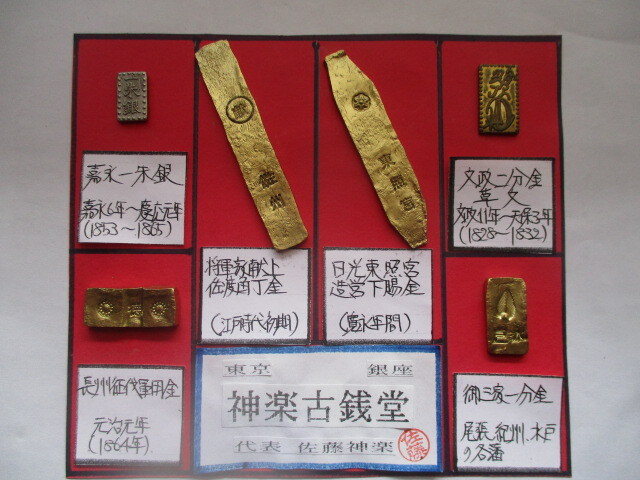 一朱銀
嘉永一朱銀
嘉永6年～慶応元年
(1853～1865)
佐州
将軍家献上
佐渡角丁金
(江戸時代初期)
東照宮
日光東照宮
造営下賜金
(寛永年間)
文政二分金
草文
文政11年～天保3年
(1828～1832)
長州征伐軍用金
元治元年
(1864年)
東京 銀座
神楽古銭堂
代表 佐藤神楽
御三家一分金
尾張、紀州、水戸
の各藩